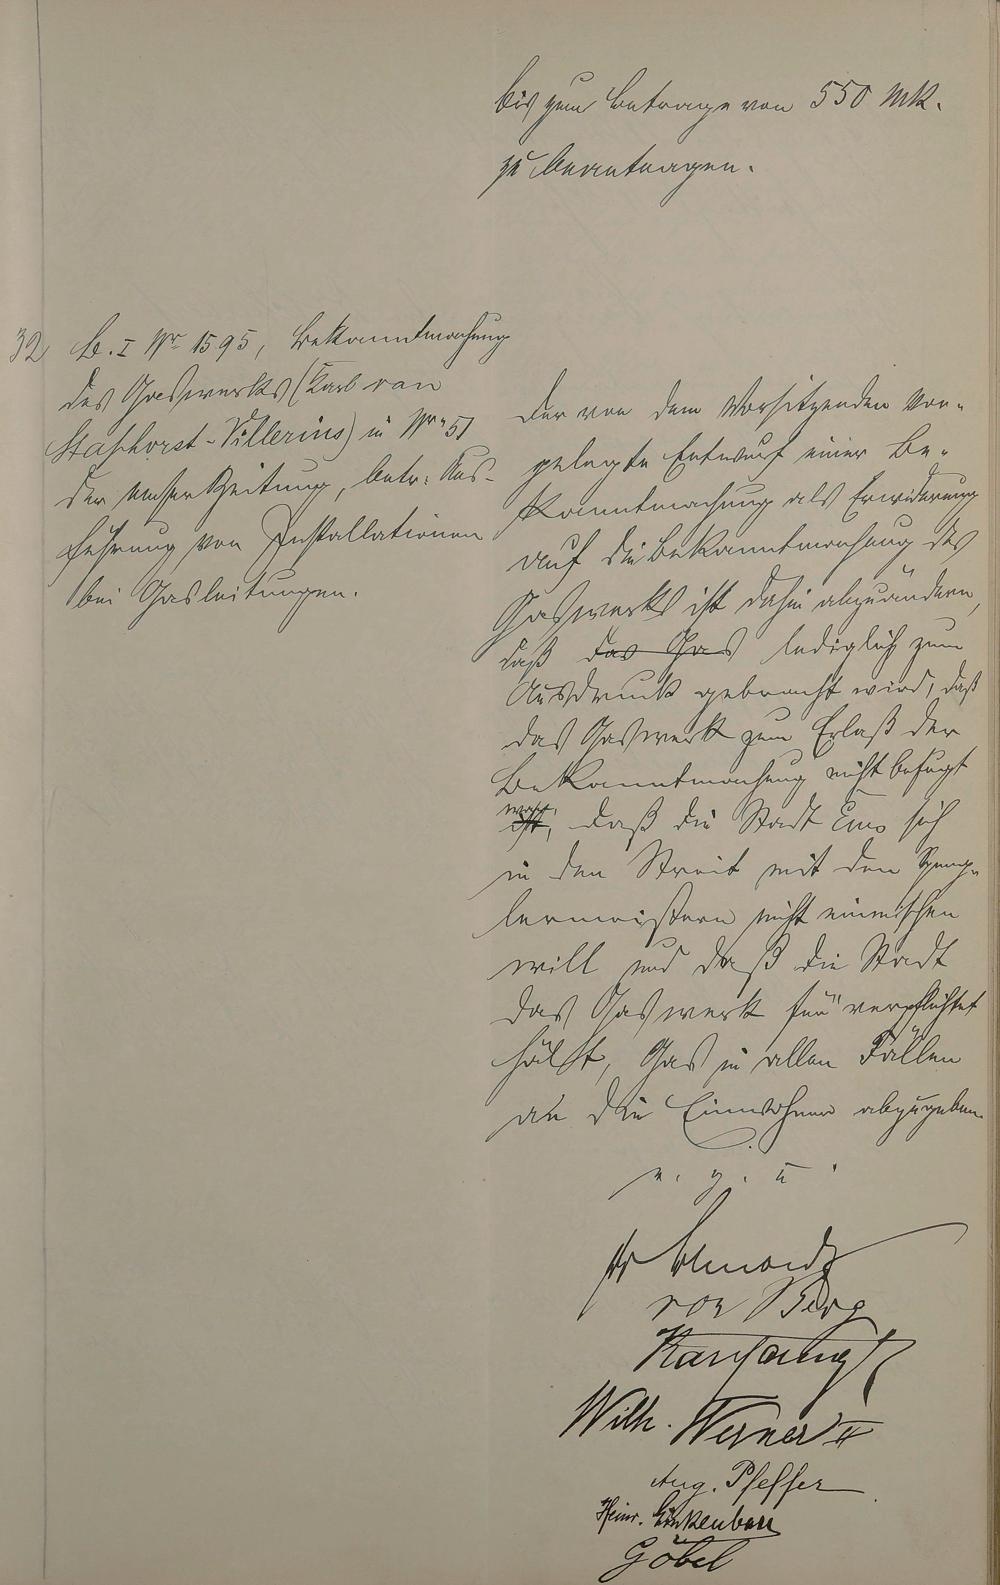 bis zum Betrage von 550 Mk.
zu beantragen.
32 B. I Nr 1595, Bekanntmachung
des Gaswerks (Karl von
Staßhorst-Villerius) in Nr. 51
der Emser Zeitung, betr: Aus-
führung von Installationen
bei Gasleitungen.
Der von dem Vorsitzenden vor-
gelegte Entwurf einer Be-
kanntmachung als Erwiderung
auf die Bekanntmachung des
Gaswerks ist dahin abzuändern,
daß das Gas lediglich zum
Ausdruck gebracht wird, daß
das Gaswerk zum Erlaß der
Bekanntmachung nicht befugt
war, daß die Stadt Ems sich
in den Streit mit den Speng-
lermeistern nicht einmischen
will und daß die Stadt
das Gaswerk für verpflichtet
hält, Gas in allen Fällen
an die Einwohner abzugeben.
v. g. u.
von Berg
Wilh. Werner II
Aug. Pfeffer
Heinr. Linkenbach
Göbel